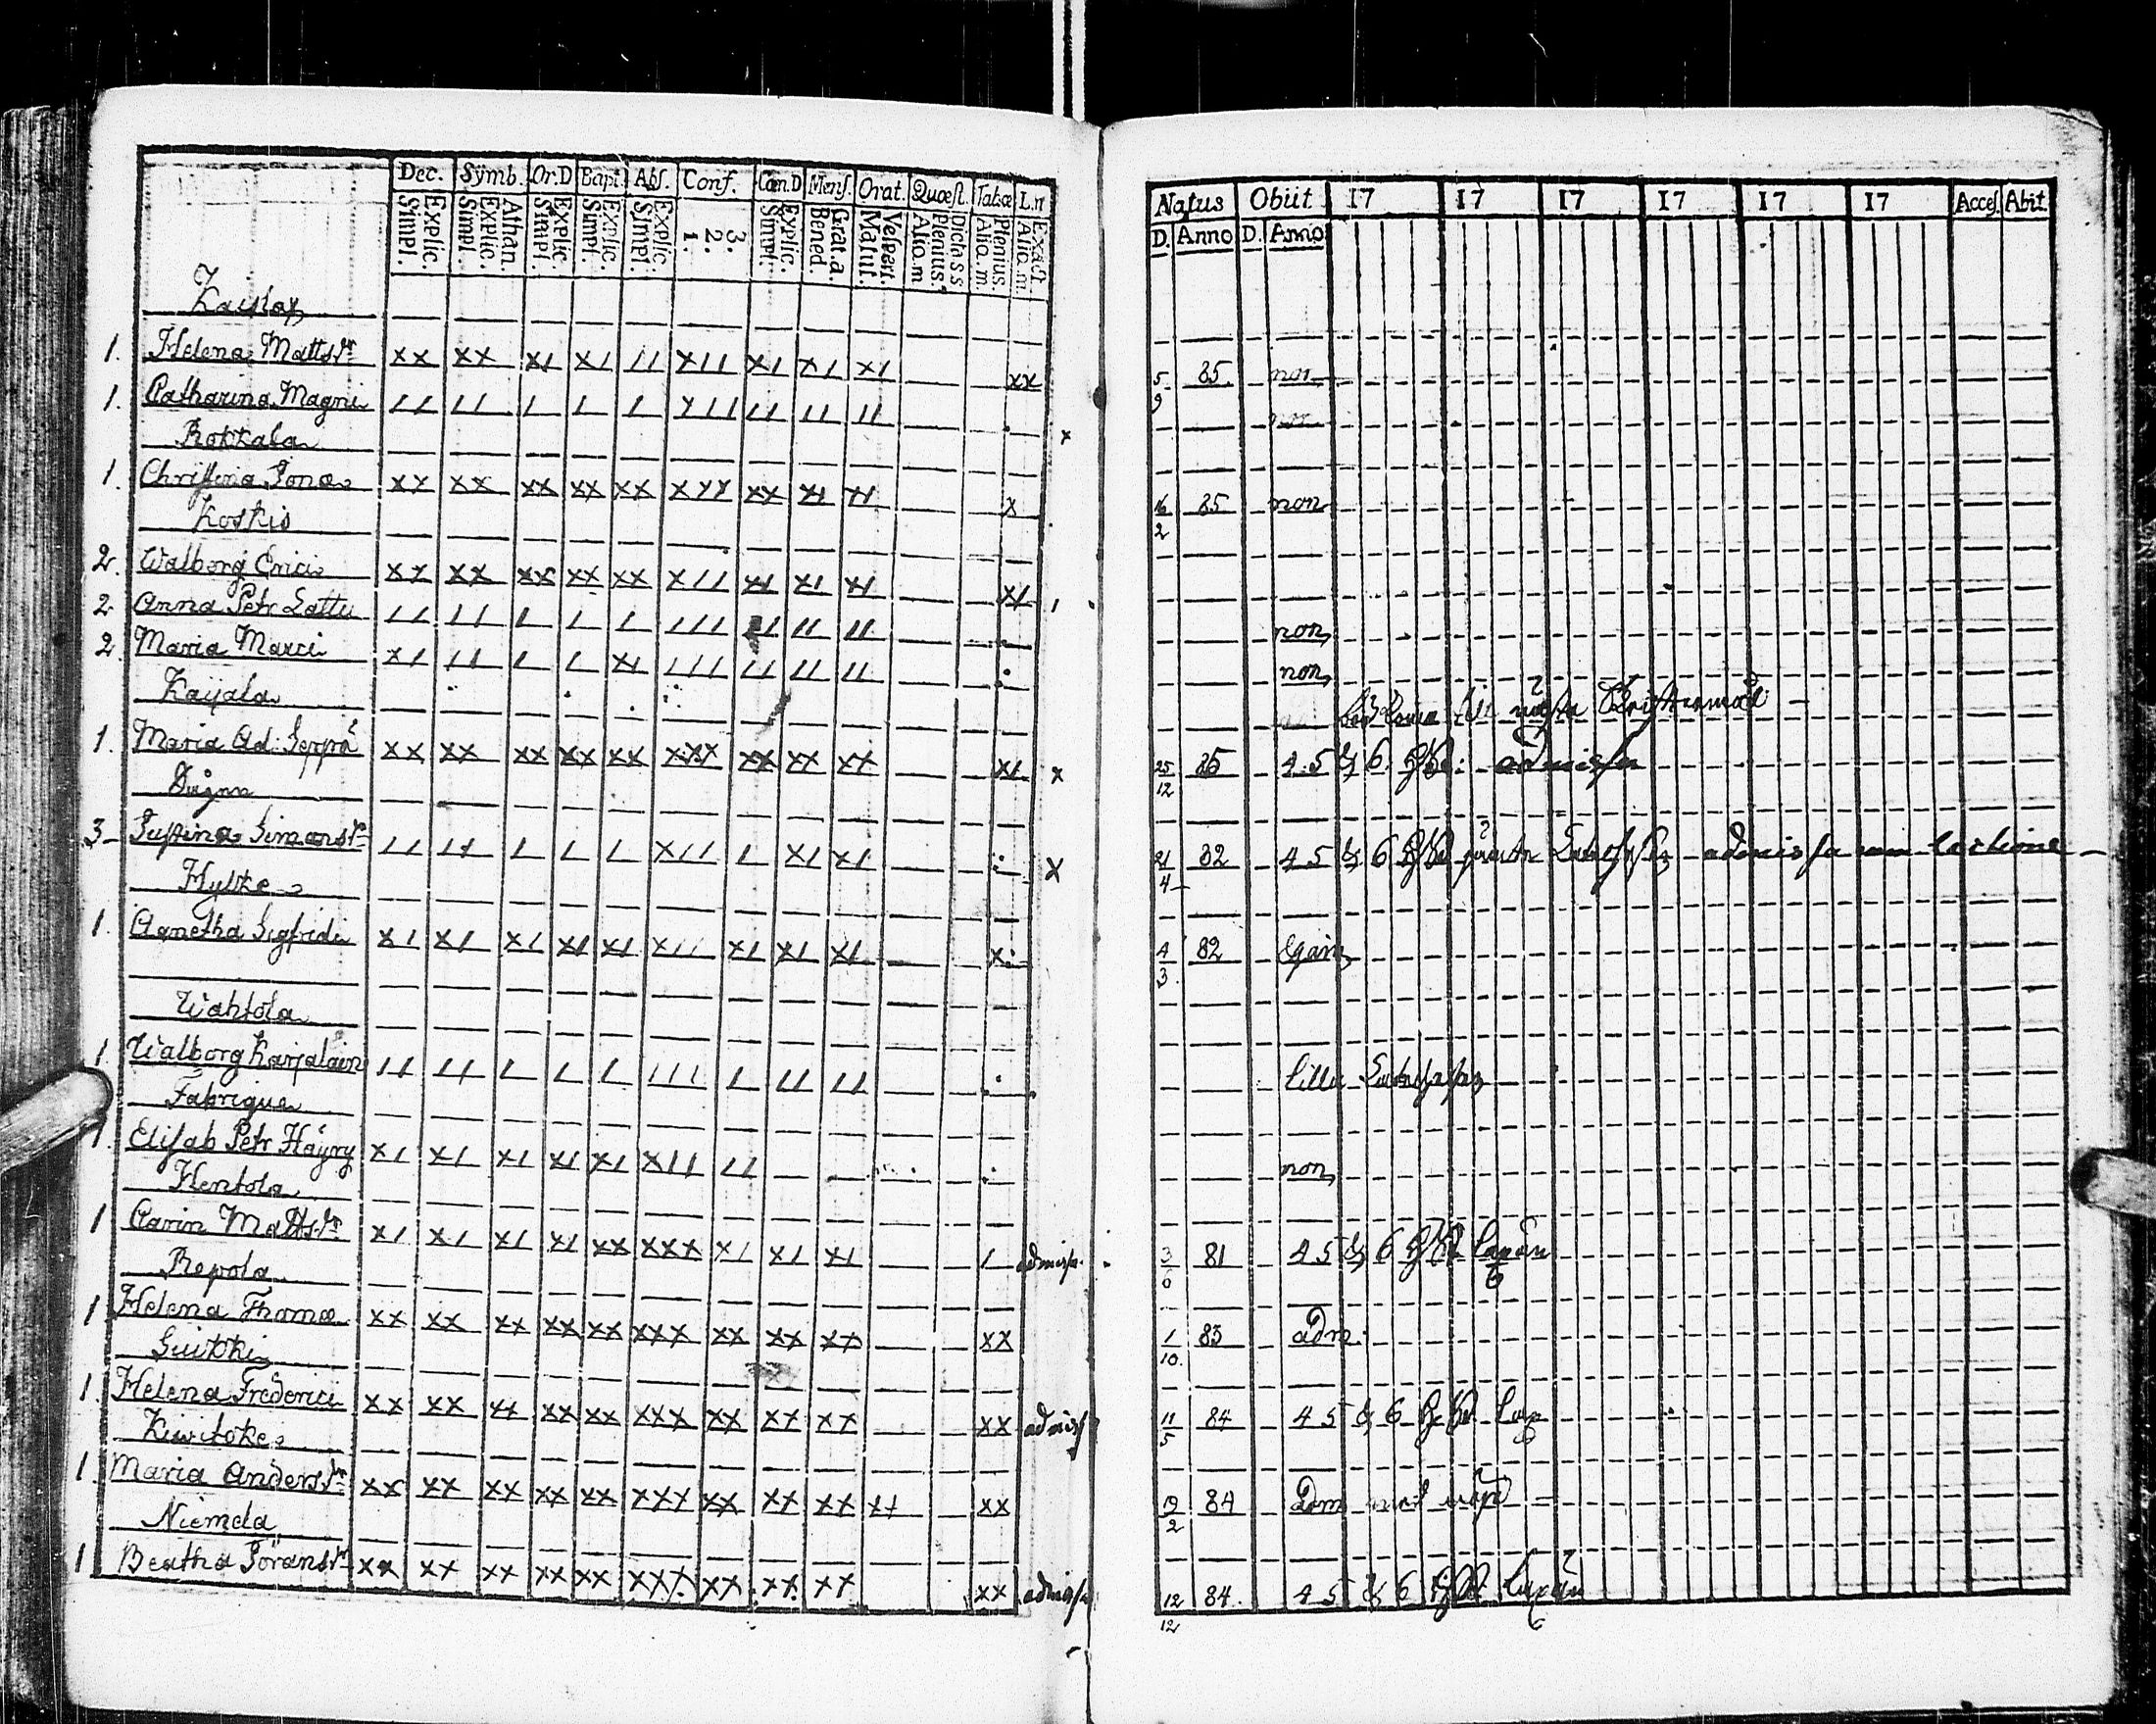 Dec. Symb. Or.D Bapt. Abs. Conf. Cœn.D Mens. Orat. Quæst. Tab.œ L.n
Simpl. Explic. Simpl. Explic. Athan. Simpl. Explic. Simpl. Explic. Simpl. Explic. 1. 2. 3. Simpl. Explic. Bened. Grat.a Matut. Vespert. Aliq.m Plenius. Dict.a s.s Aliq.m Plenius Aliq.m Exact
Natus Obiit 17 17 17 17 17 17 Acces. Abit
D. Anno D. Anno
1. Helena Matts dr xx xx x1 x1 11 x11 x1 x1 x1 xx 5/9 85 non
1. Catharina Magni 11 11 1 1 1 x11 11 11 11 x non
Rokkala
1. Christina Jonæ xx xx xx xx xx xxx xx x1 x1 x 16/2 85 non
Koskis
2. Walborg Erici xx xx xx xx xx x11 x1 x1 x1 x1
2. Anna Petr Lattu 11 11 1 1 1 111 11 11 11 non
2. Maria Marci x1 11 1 1 x1 111 11 11 11 non
Kaijala
1. Maria Ad: Seppä xx xx xx xx xx xxx xx xx xx x1 x 25/12 85 4 5 & 6 admissa
3 Justina Simons dr 11 11 1 1 1 x11 1 x1 x1 x 21/4 82 4 5 & 6 admissa cum lectione
Hytke
1. Agnetha Sigfridi x1 x1 x1 x1 x1 x11 x1 x1 x1 x 4/3 82
Wahtola
1. Walborg Karjalain 11 11 1 1 1 111 1 11 11 lilla
Fabrique
1. Elisab Petr Häyry x1 x1 x1 x1 x1 x11 11 non
Hentola
1 Carin Matts dr x1 x1 x1 x1 xx xxx x1 x1 x1 1 admissa 3/6 81 4 5 & 6
Repola
1 Helena Thomæ xx xx xx xx xx xxx xx xx xx xx 1/10 83 adm
Suikki
1. Helena Frederici xx xx xx xx xx xxx xx xx xx xx admiss 11/5 84 4 5 & 6
1. Maria Anders dr xx xx xx xx xx xxx xx xx xx xx xx 19/2 84 adm
Niemela
1 Beatha Jörans dr xx xx xx xx xx xxx xx xx xx xx admissa 12/12 84 4 5 & 6